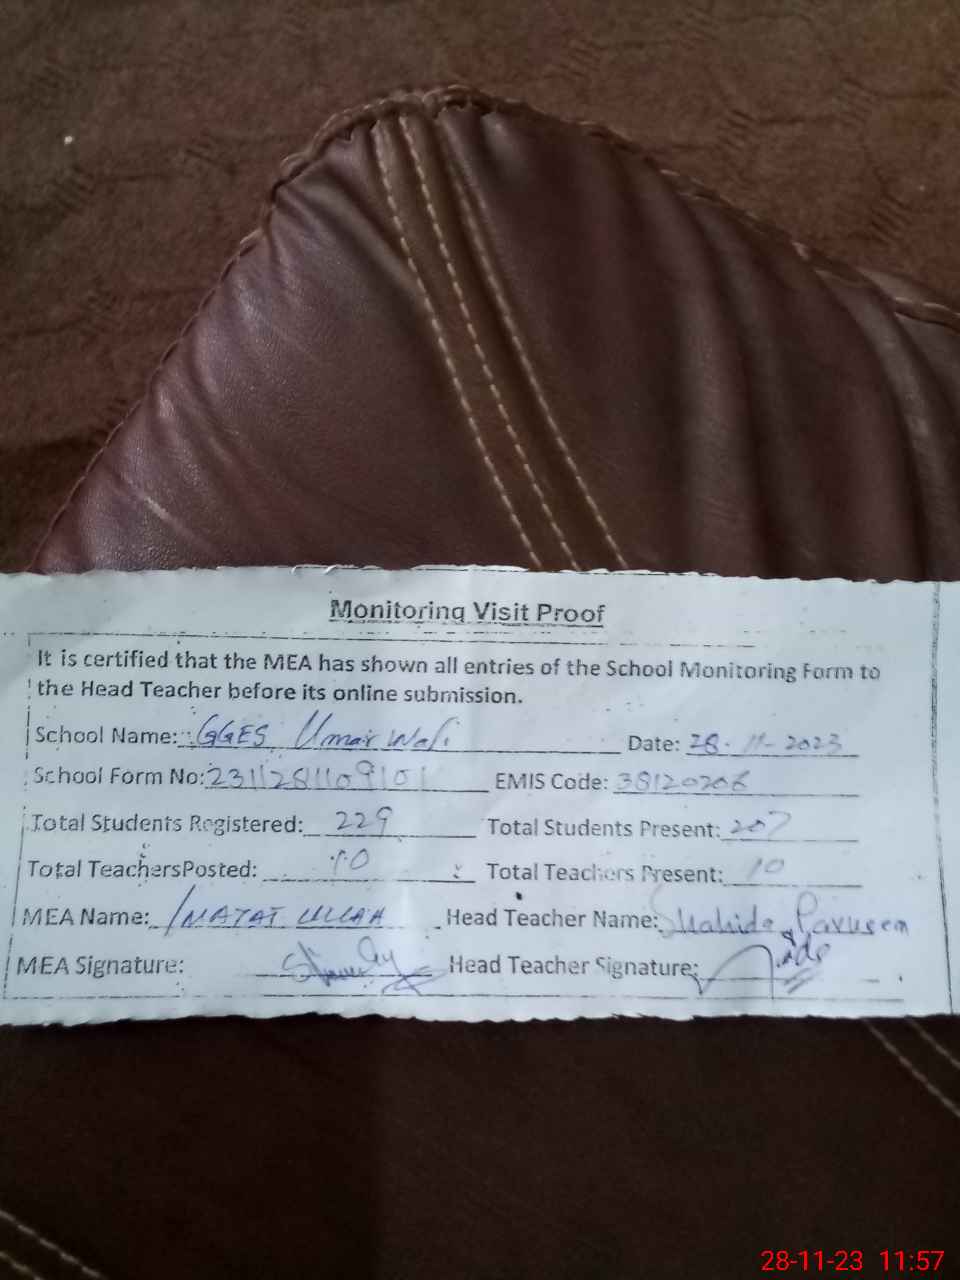 Monitoring Visit Proof
It is certified that the MEA has shown all entries of the School Monitoring Form to
the Head Teacher before its online submission.
School Name: GGES Umar Wali Date: 28-11-2023
School Form No: 2311281109101 EMIS Code: 38120206
Total Students Registered: 229 Total Students Present: 207
Total TeachersPosted: 10 Total Teachers Present: 10
MEA Name: INAYAT ULLAH Head Teacher Name: Shahida Parveen
MEA Signature: Head Teacher Signature:
28-11-23 11:57